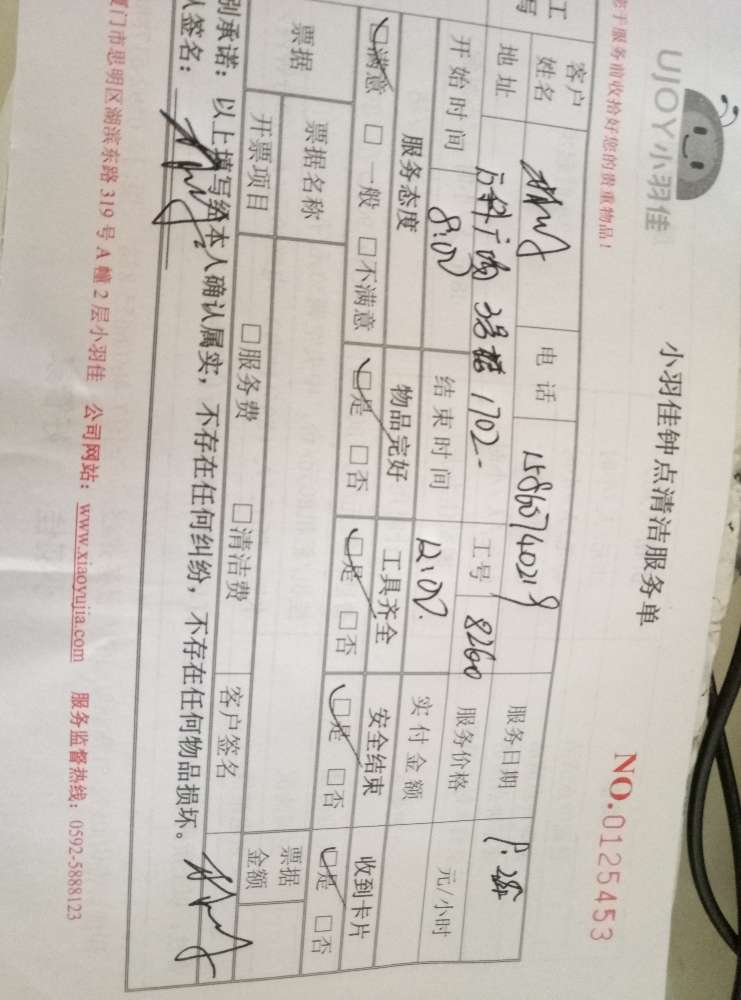 UJOY小羽佳
小羽佳钟点清洁服务单
NO.0125453
于服务前收拾好您的贵重物品！
工
写
客户
姓名
电 话
15860740219
服务日期
地址
3号楼1702-
工号
8260
服务价格
元/小时
开始时间
8:00
结束时间
12:00
实付金额
服务态度
物品完好
工具齐全
安全结束
收到卡片
□满意 □一般 □不满意
□是 □否
□是 □否
□是 □否
□是 □否
票据
票据名称
开票项目
□服务费 □清洁费
客户签名
票据
金额
别承诺：以上填写经本人确认属实，不存在任何纠纷，不存在任何物品损坏。
人签名：
厦门市思明区湖滨东路319号A幢2层小羽佳 公司网站：www.xiaoyujia.com 服务监督热线：0592-5888123